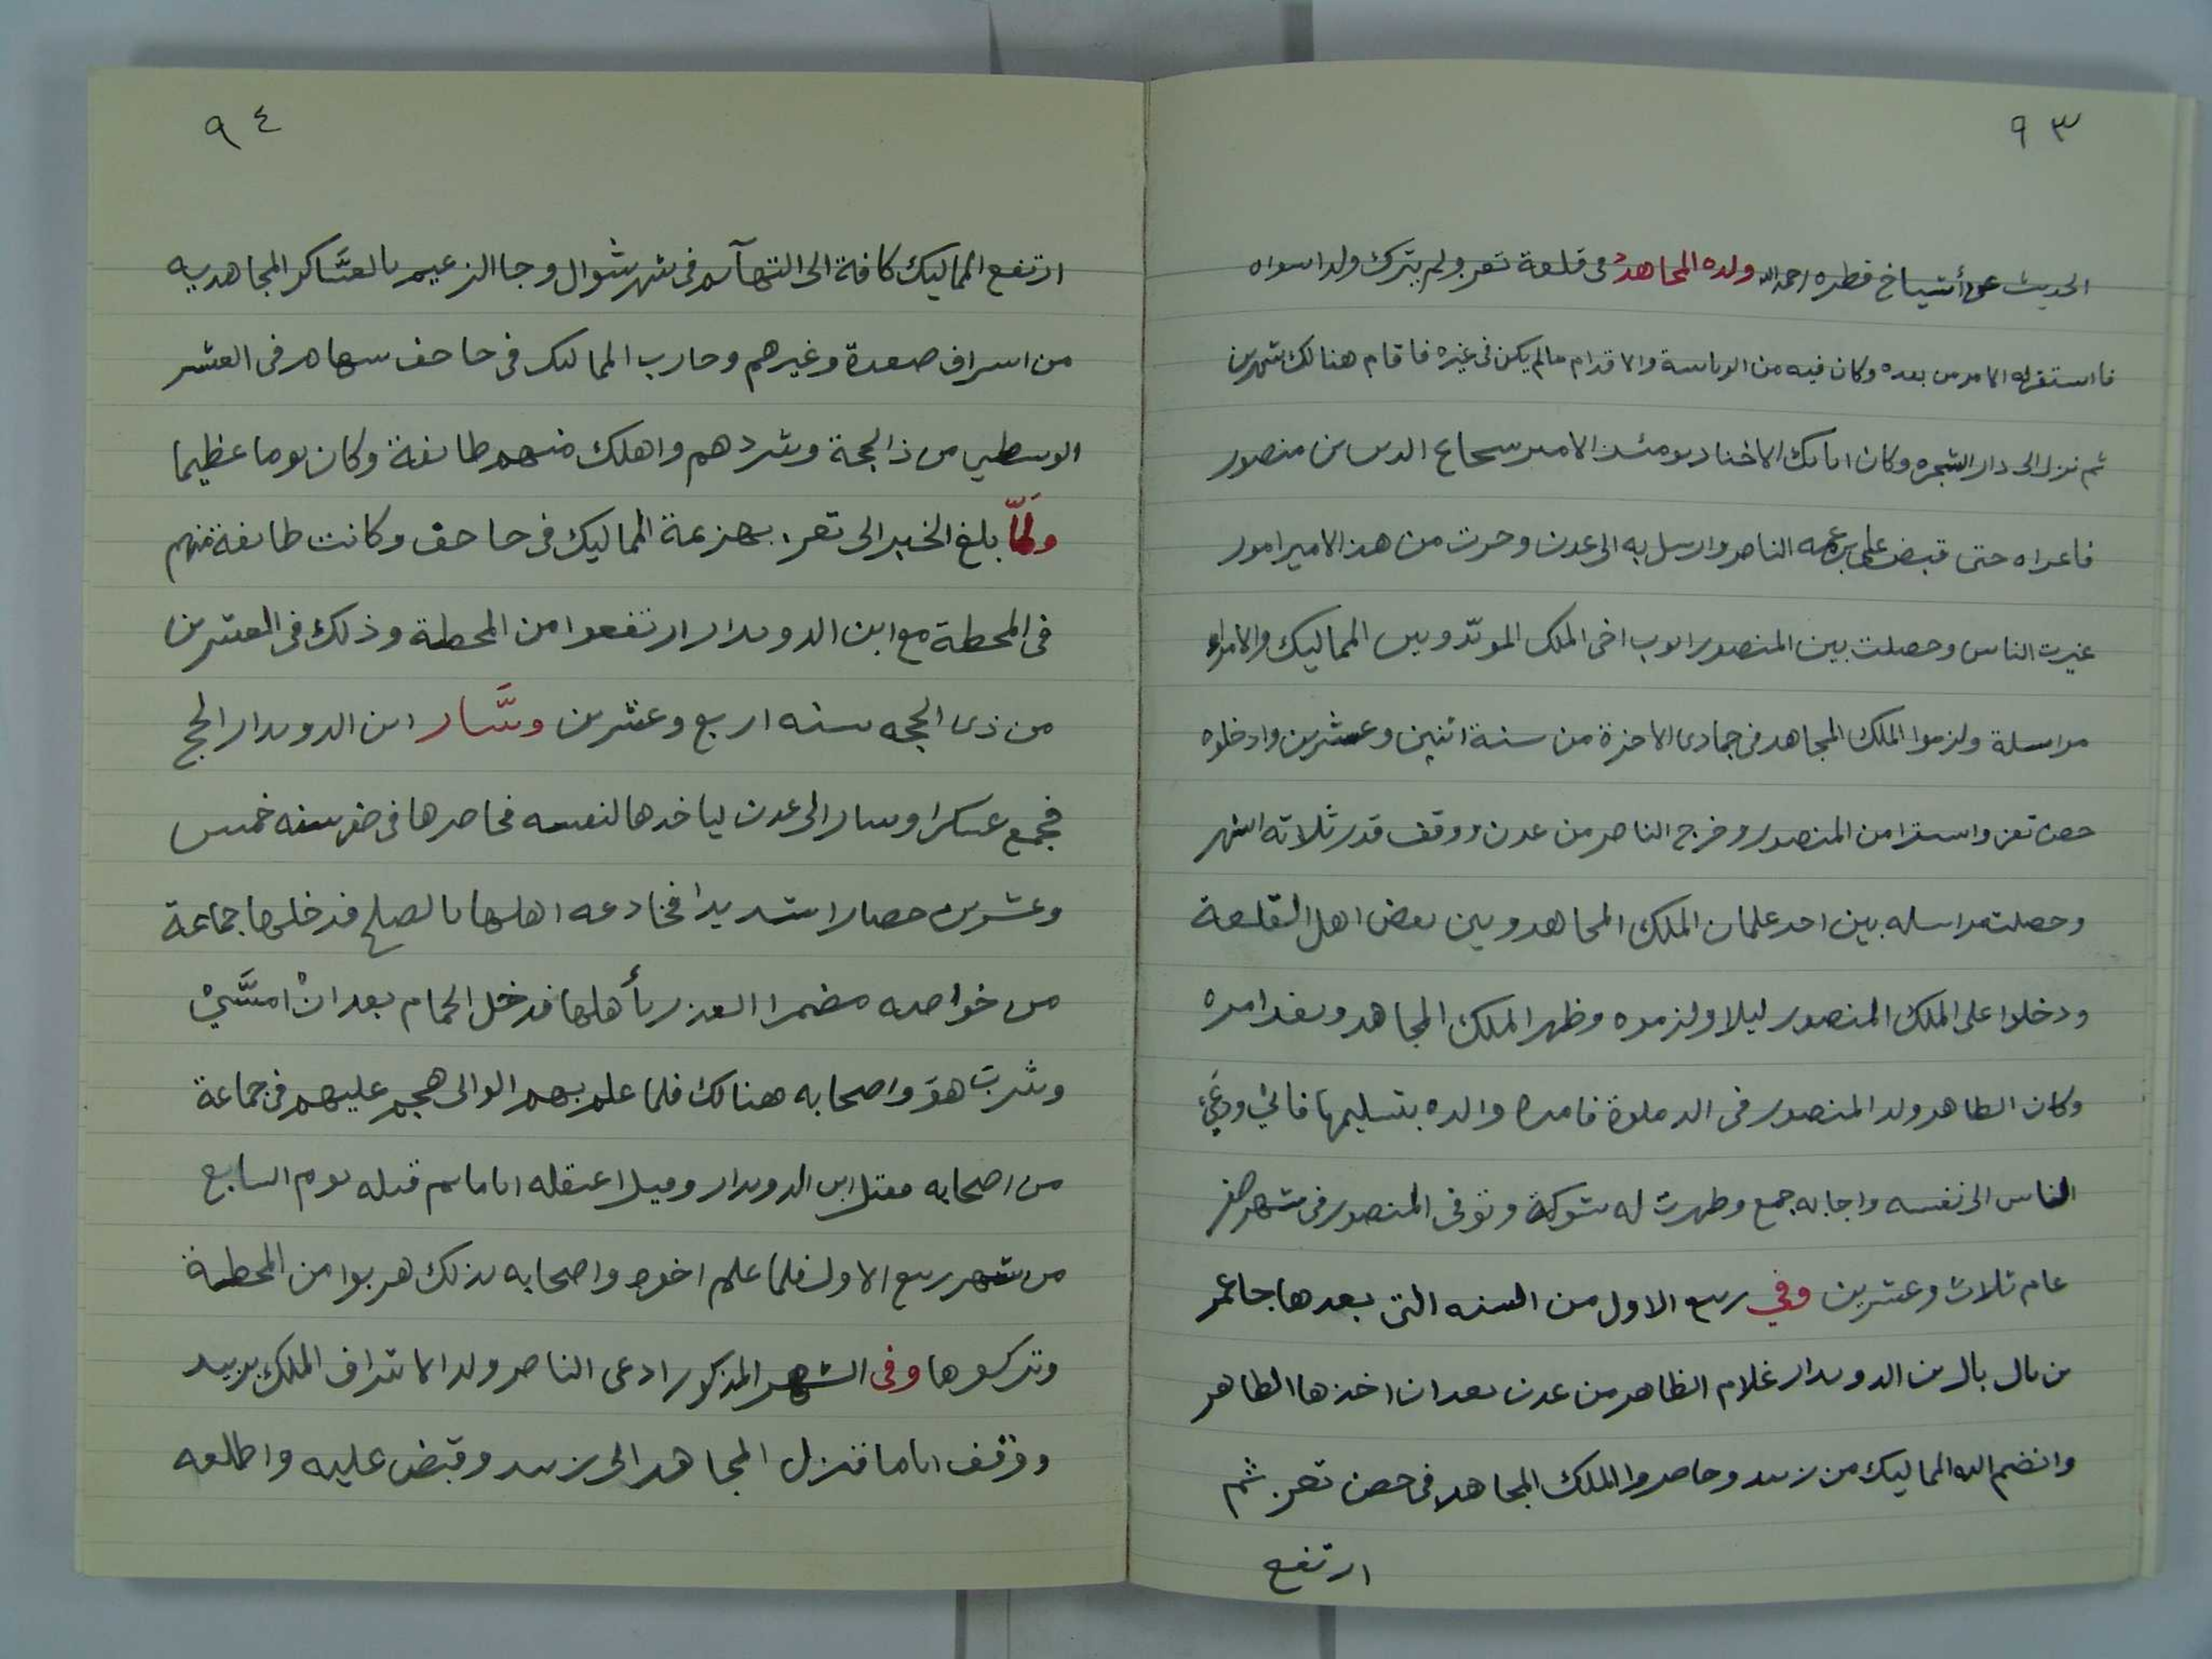 ٩٣
الحديث عن أشياخ قطره رحمه الله ولده المجاهد في قلعة تعز ولم يترك ولدا سواه
فاستقر له الامر من بعده وكان فيه من الرياسة والاقدام ما لم يكن في غيره فاقام هنالك شهرين
ثم نزل الى دار الشجره وكان اتابك الاخناد يومئذ الامير سحاع الدين بن منصور
فاغراه حتى قبض على بن عمه الناصر وارسل به الى عدن وجرت من هذا الامير امور
غيرت الناس وحصلت بين المنصور ايوب اخي الملك المويد وبين المماليك والامراء
مراسلة ولزموا الملك المجاهد في جمادى الاخرة من سنة اثنين وعشرين وادخلوه
حصن تعز واستقر امن المنصور وخرج الناصر من عدن ووقف قدر ثلاثه اشهر
وحصلت مراسله بين احد غلمان الملك المجاهد وبين بعض اهل القلعة
ودخلوا على الملك المنصور ليلا ولزموه وظهر الملك المجاهد ونفذ امره
وكان الظاهر ولد المنصور في الدملوة فامره والده بتسليمها فابي ودعي
الناس الى نفسه واجابه جمع وظهرت له شوكة وتوفى المنصور في شهر صفر
عام ثلاث وعشرين وفي ربيع الاول من السنه التي بعدها جا عمر
بن بال بال بن الدويدار غلام الظاهر من عدن بعد ان اخذها الظاهر
وانضم اليه المماليك من زبيد وحاصروا الملك المجاهد في حصن تعز ثم
ارتفع
٩٤
ارتفع المماليك كافة الى التهآيم في شهر شوال وجا الزعيم بالعسّاكر المجاهديه
من اشراف صعدة وغيرهم وحارب المماليك في جاحف سهام في العشر
الوسطي من ذالحجة وشردهم واهلك منهم طايفة وكان يوما عظيما
ولمّا بلغ الخبر الى تعز بهزيمة المماليك في جاحف وكانت طايفة منهم
في المحطة مع ابن الدويدار ارتفعوا من المحطة وذلك في العشرين
من ذى الحجه سنه اربع وعشرين وسَّار ابن الدويدار الى لحج
فجمع عسكرا وسار الى عدن لياخدها لنفسه فحاصرها في صفر سنه خمس
وعشرين حصارا شديدا فخادعه اهلها بالصلح فدخلها جماعة
من خواصه مضمرا الغدر بأهلها فدخل الحمام بعد انْ امسَّيْ
وشرب هوَ واصحابه هنالك فلما علم بهم الوالي هجم عليهم في جماعة
من اصحابه فقتل ابن الدويدار وقيل اعتقله اياما ثم قتله يوم السابع
من شهر ربيع الاول فلما علم اخوه واصحابه بذلك هربوا من المحطة
وتركوها وفى الشهر المذكور ادعى الناصر ولد الاشراف الملك بزبيد
ووقف اياما فنزل المجاهد الى زبيد وقبض عليه واطلعه